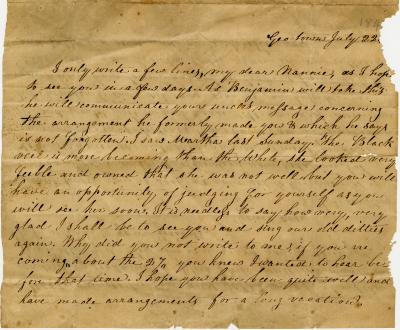 Geo town July 22
I only write a few lines, my dear Nannie, as I hope
to see you in a few days. As Benjamin will take this
he will communicate your uncle's message concerning
the arrangement he formerly made you & which he says
is not forgotten. I saw Martha last Sunday. The Black
veil is more becoming than the White, she looked very
feeble and owned that she was not well but you will
have an opportunity of judging for yourself as you
will see her soon. It is needless to say how very, very
glad I shall be to see you and sing our old ditties
again. Why did you not write to me, if you are
coming about the 27th you knew I wanted to hear be-
fore that time. I hope you have been quite well and
have made arrangements for a long vacation.